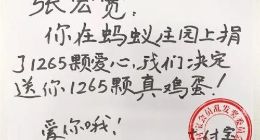 张宏宽：
你在蚂蚁庄园上捐
了1265颗爱心,我们决定
送你1265颗真鸡蛋！
爱你哦！